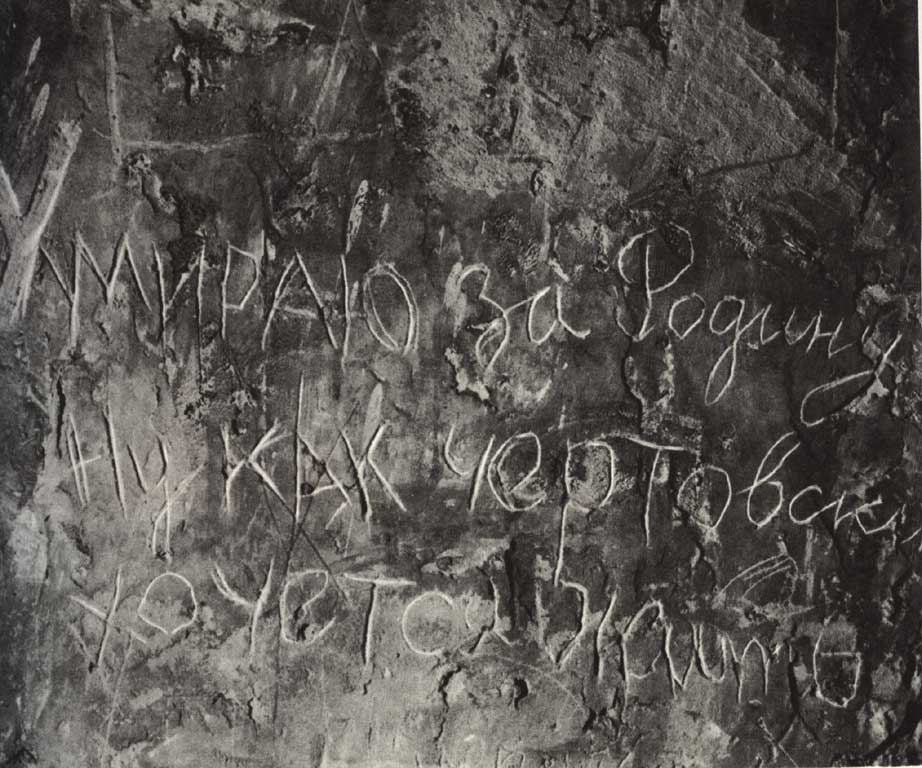 УМИРАЮ за Родину
НУ КАК чертовски
хочется жить